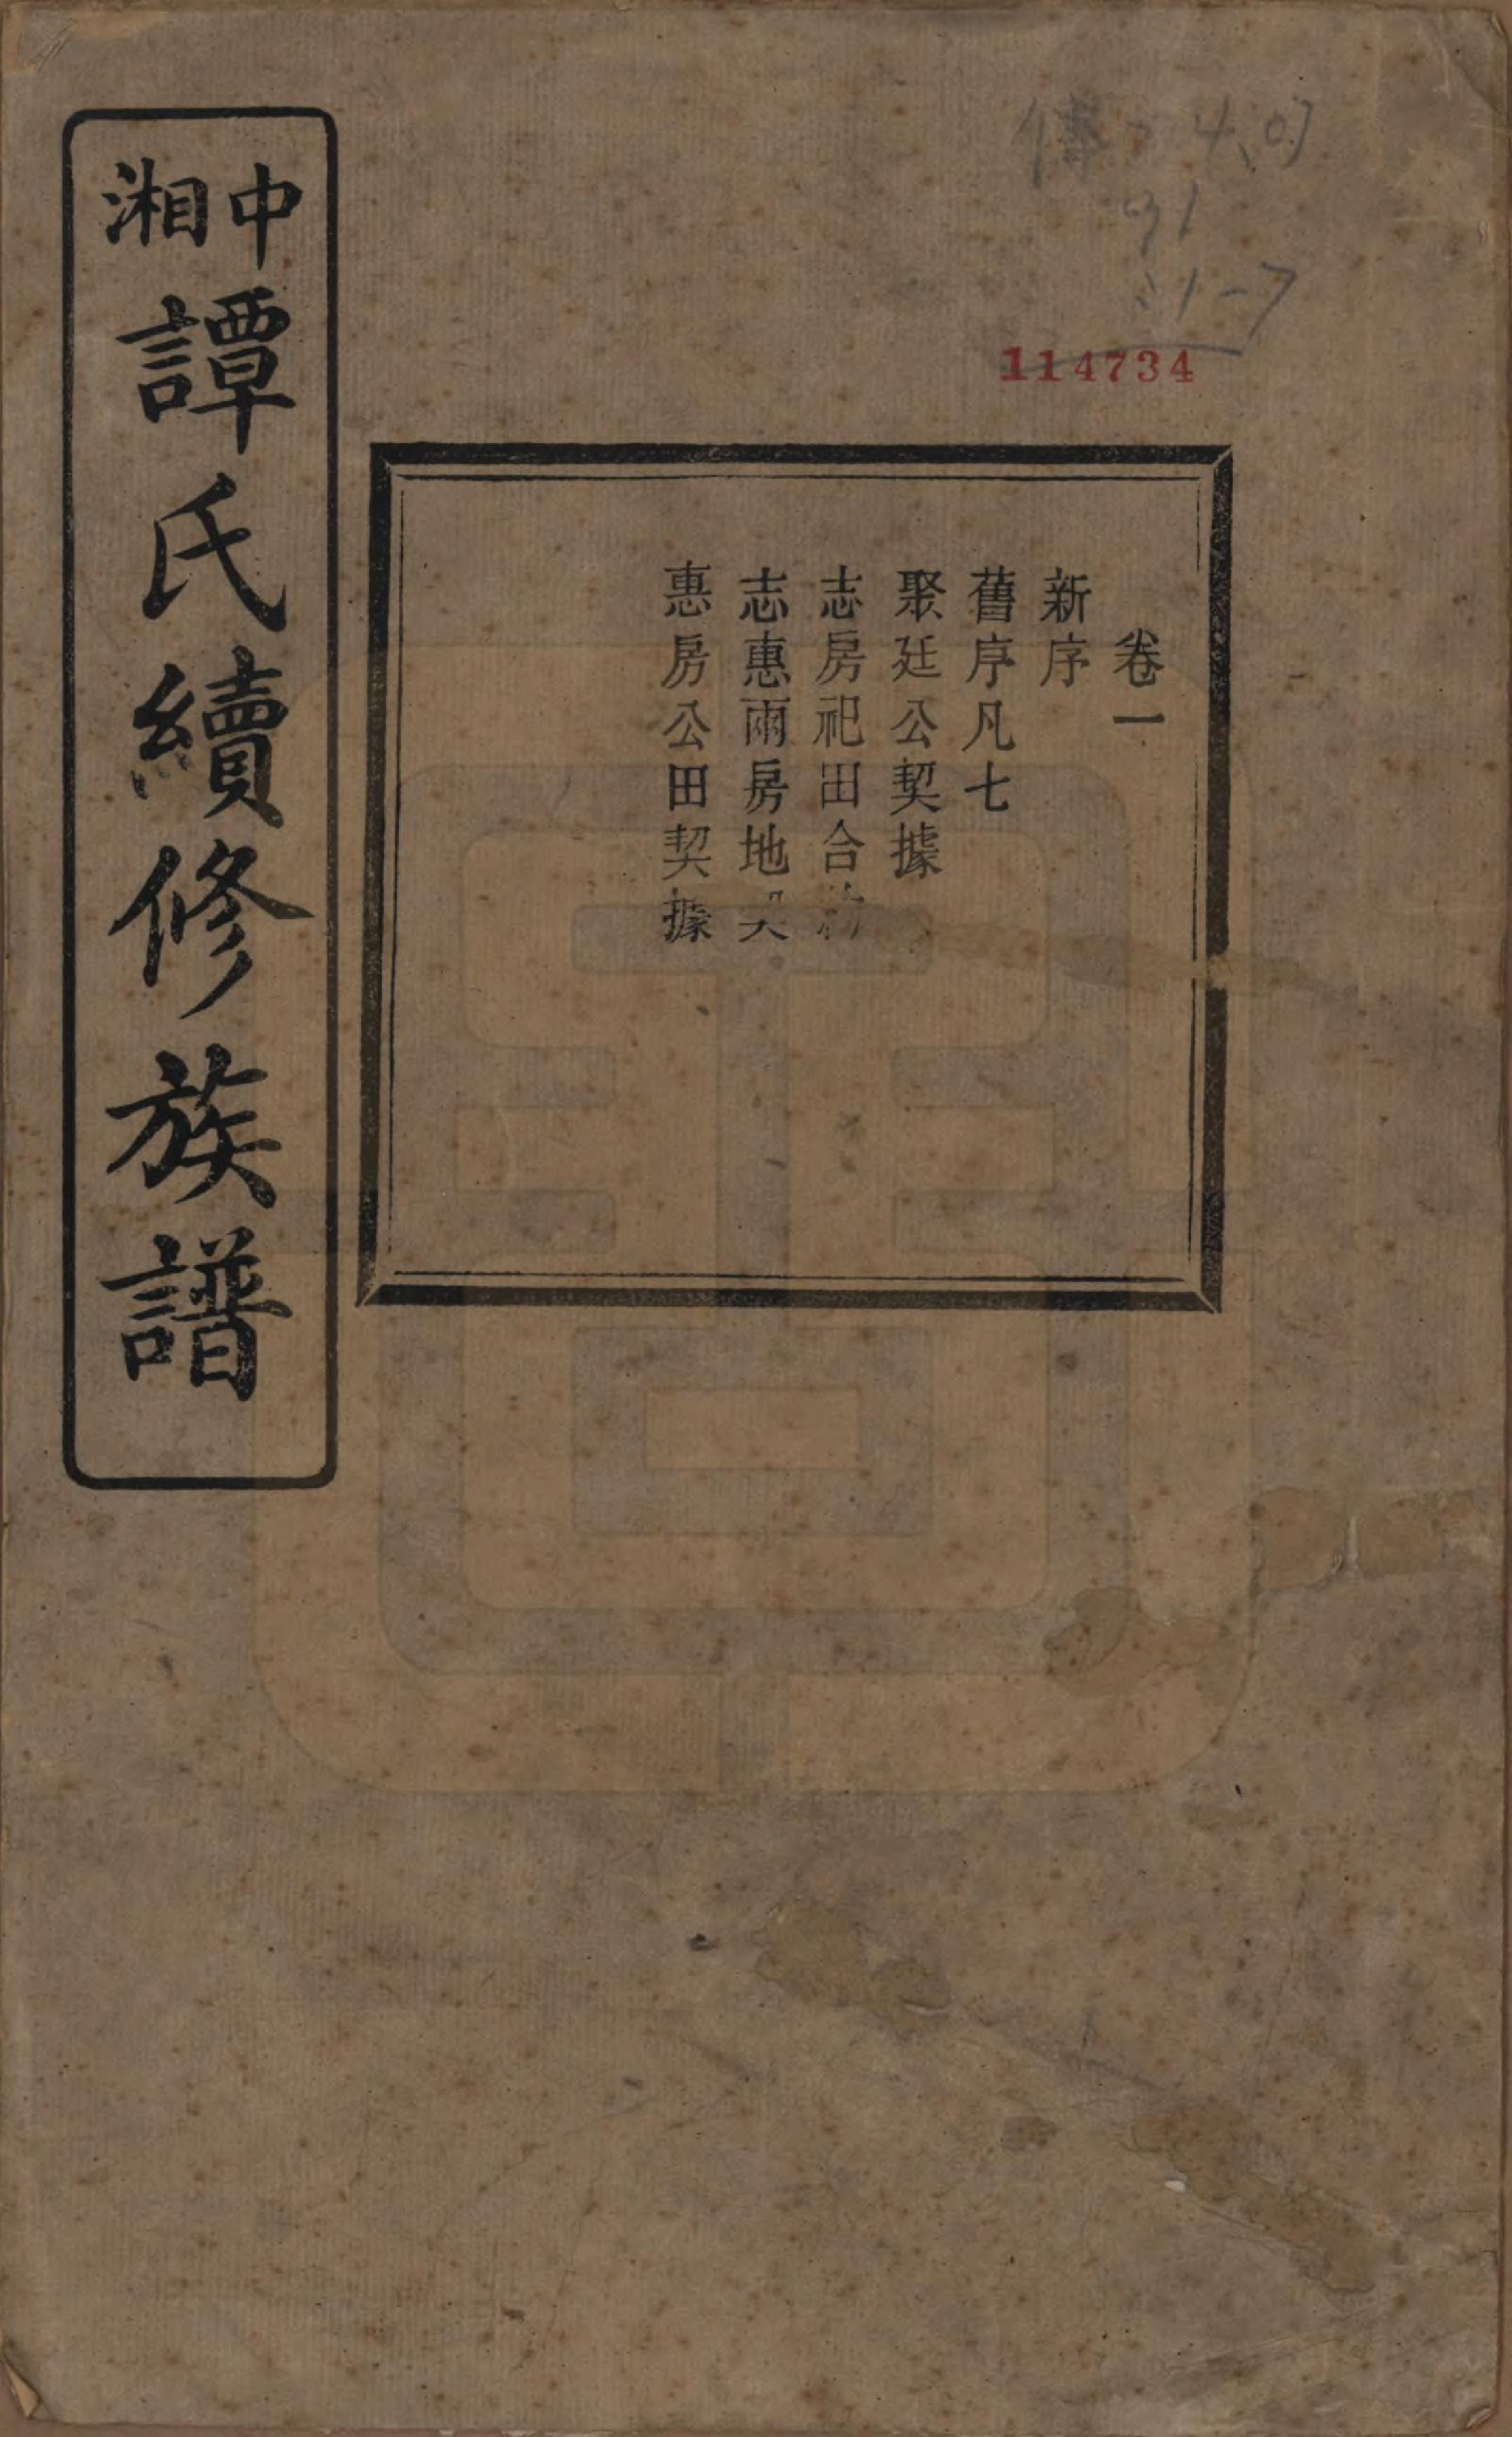 中湘譚氏續修族譜
114734
卷一
新序
舊序凡七
聚廷公契據
志房祀田合
志惠兩房地契
惠房公田契據